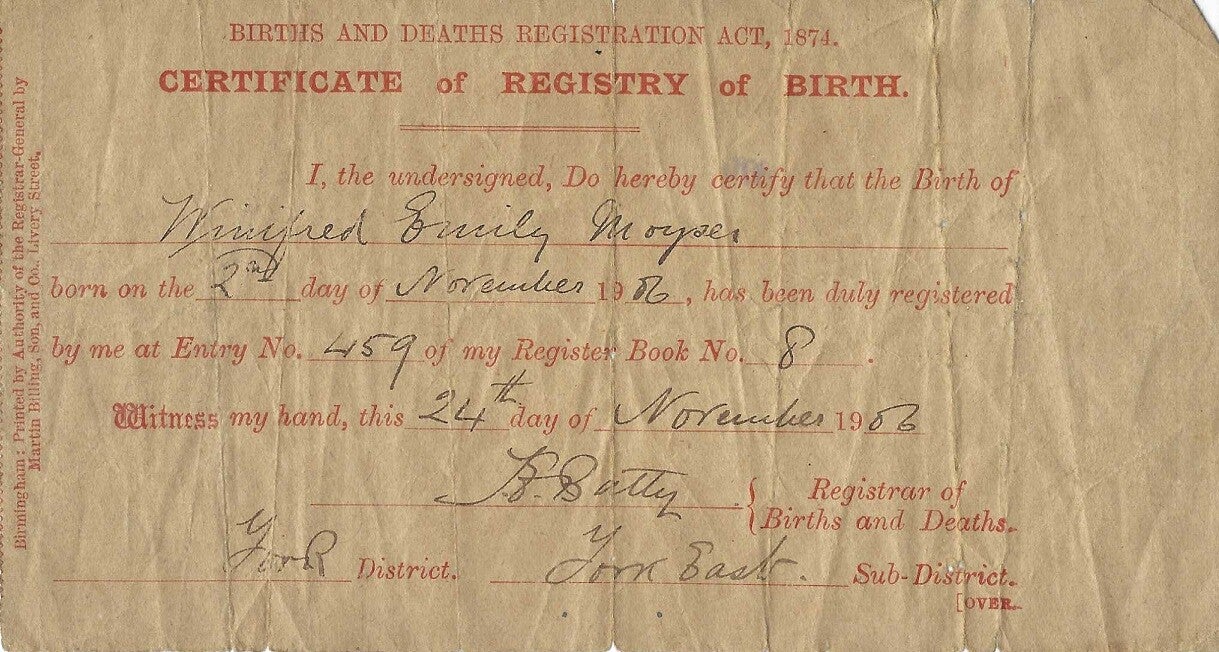 BIRTHS AND DEATHS REGISTRATION ACT, 1874.
CERTIFICATE of REGISTRY of BIRTH.
I, the undersigned, Do hereby certify that the Birth of
Winifred Emily Moyser
born on the 2nd day of November 1906, has been duly registered
by me at Entry No. 459 of my Register Book No. 8.
Witness my hand, this 24th day of November 1906
B. Batty Registrar of
Births and Deaths.
York District. York East. Sub-District.
[OVER.
Birmingham: Printed by Authority of the Registrar-General by
Martin Billing, Son, and Co., Livery Street.